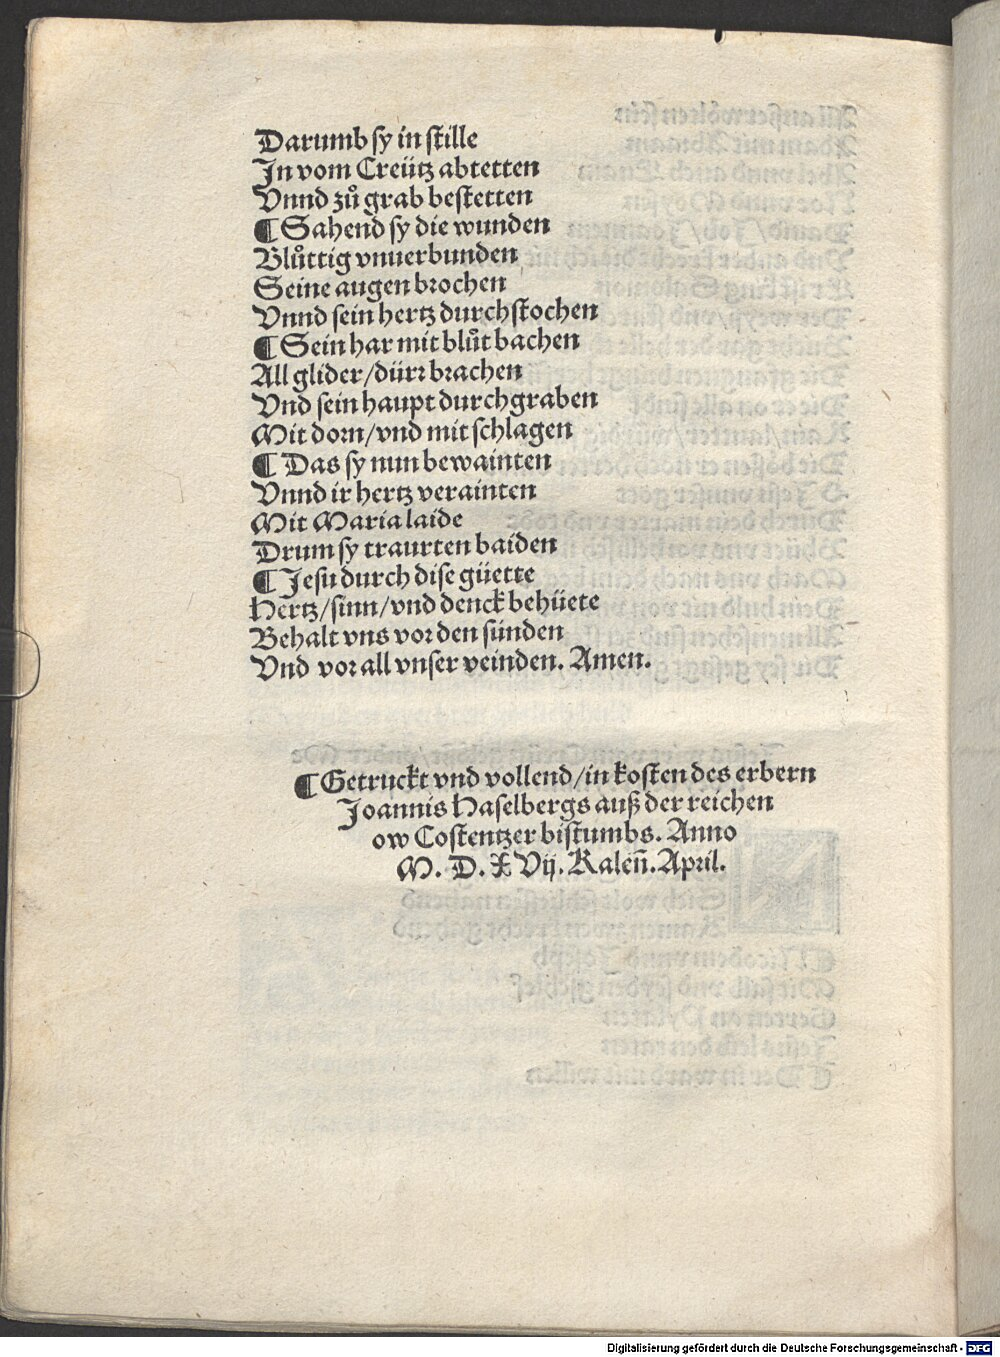 Darumb sy in stille
In vom Creütz abtetten
Vnnd zů grab bestetten
¶ Sahend sy die wunden
Blůttig vnuerbunden
Seine augen brochen
Vnnd sein hertz durchstochen
¶ Sein har mit blůt bachen
All glider/dürr brachen
Vnd sein haupt durchgraben
Mit dorn/vnd mit schlagen
¶ Das sy nun bewainten
Vnnd ir hertz verainten
Mit Maria laide
Drum sy traurten baiden
¶ Jesu durch dise güette
Hertz/sinn/vnd denck behüete
Behalt vns vor den sünden
Vnd vor all vnser veinden. Amen.
¶ Getruckt vnd vollend/in kosten des erbern
Joannis Haselbergs auß der reichen
ow Costentzer bistumbs. Anno
M. D. X Vij. Kaleñ. April.
Digitalisierung gefördert durch die Deutsche Forschungsgemeinschaft - DFG